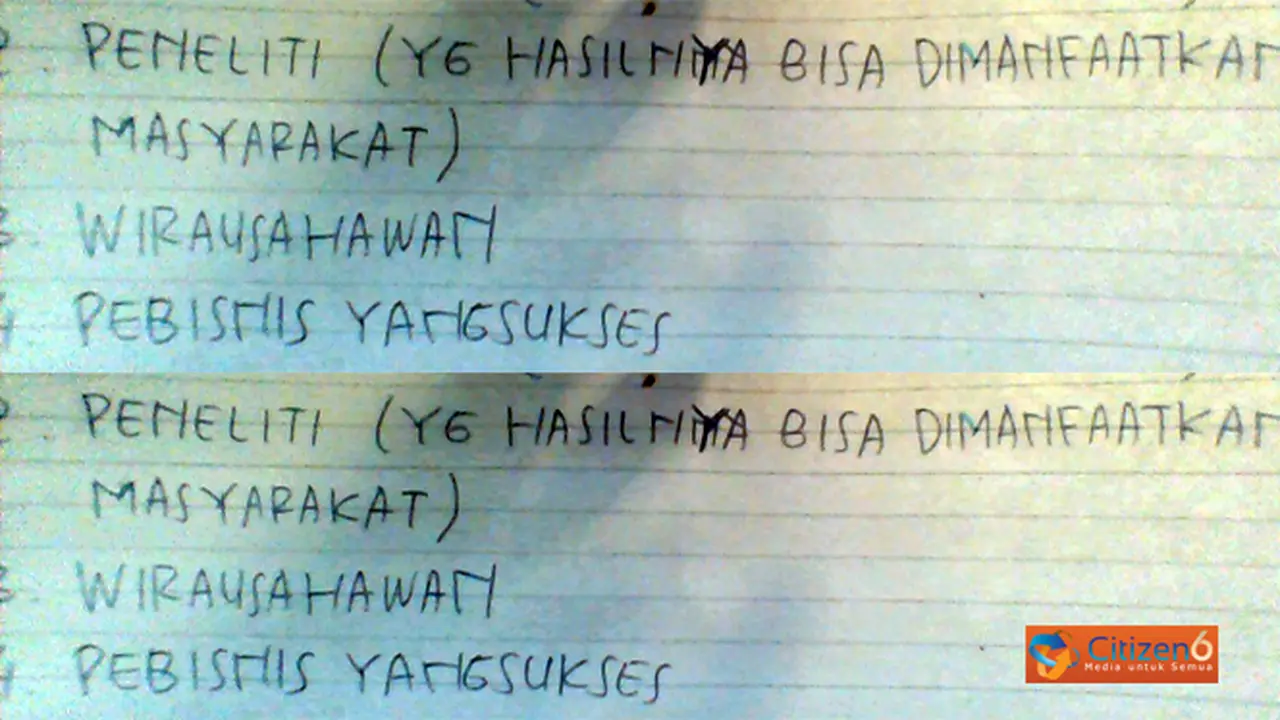 2. PENELITI (YG HASILNYA BISA DIMANFAATKAN
MASYARAKAT)
3. WIRAUSAHAWAN
4 PEBISNIS YANGSUKSES
2. PENELITI (YG HASILNYA BISA DIMANFAATKAN
MASYARAKAT)
3. WIRAUSAHAWAN
4 PEBISNIS YANGSUKSES
Citizen6
Media untuk Semua